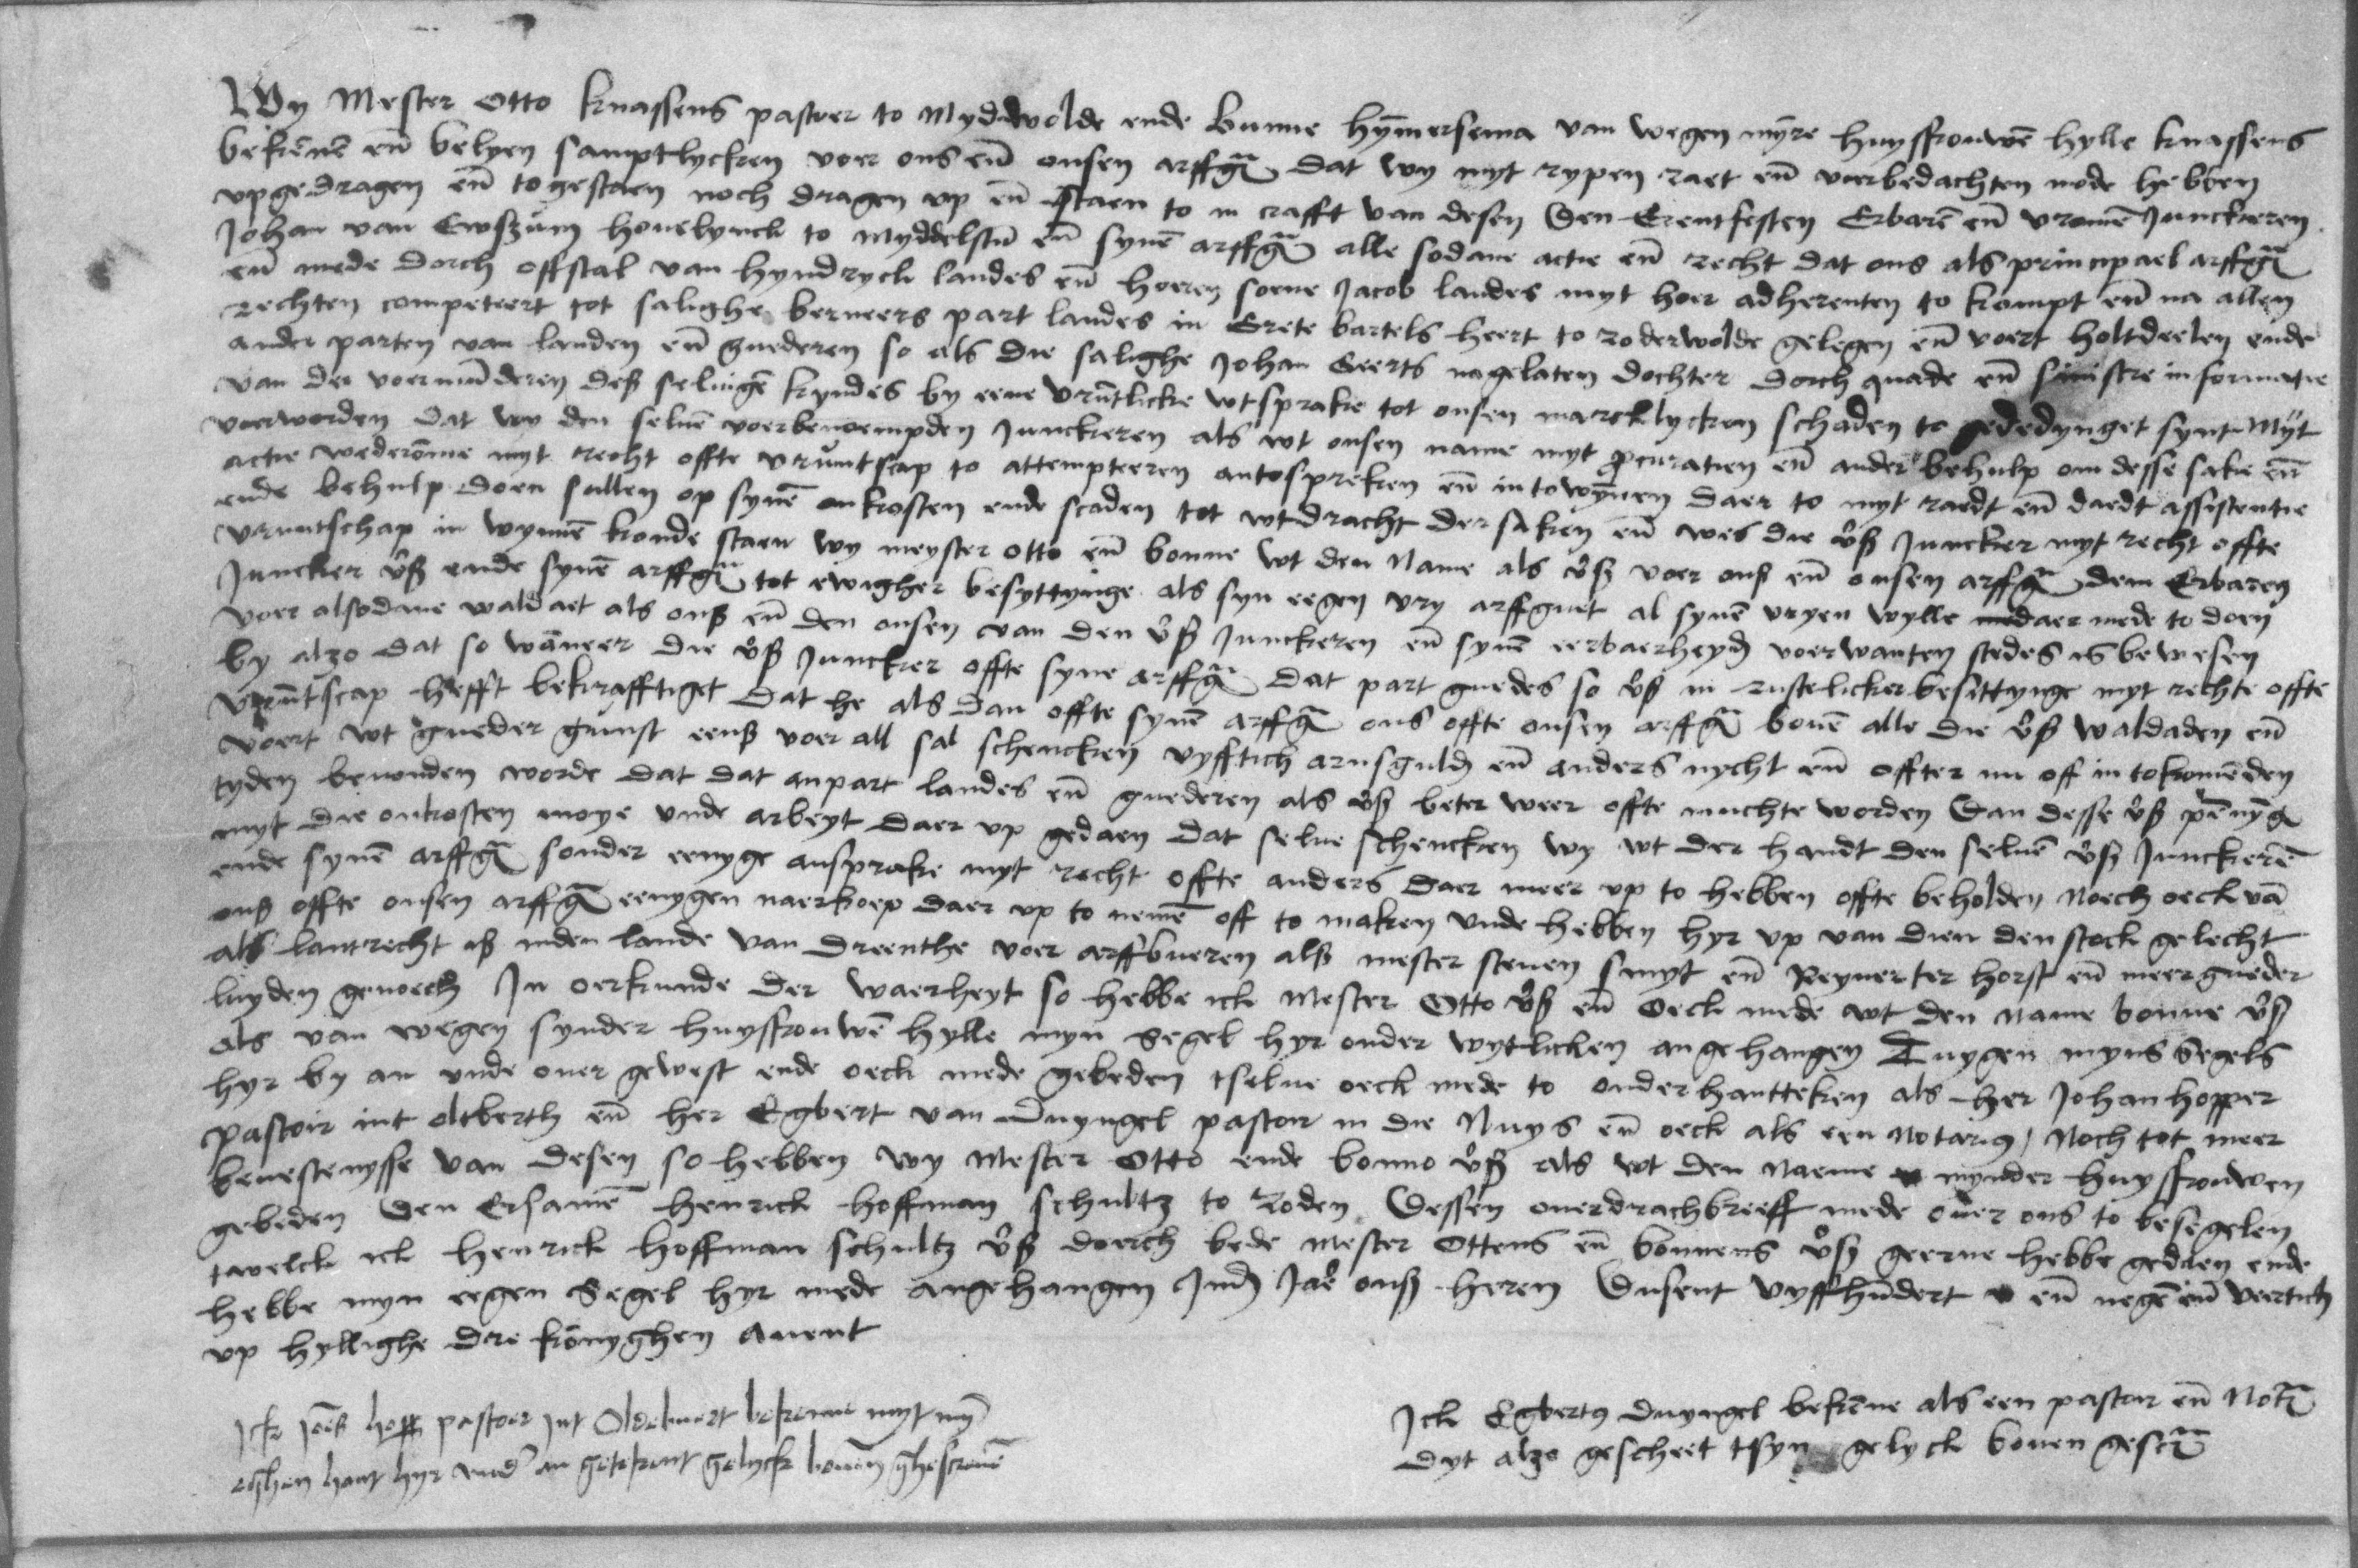 Wy Mester Otto knassens pastoer to Mydwolde ende bunne hȳmersema van wegen mȳre huysfrouwē hylle knassens
bekēnē eñ belyen samptlycken voer ons eñ onsen arffgn̄ dat wy myt rypen raet eñ voerbedachten mode hebben
upgedragen eñ togestaen noch dragen up eñ staen to in crafft van desen den Erentfesten Erbarē eñ vromē Junckeren
Johan van Ewszum hovelynck to myddelstū eñ synē arffgn̄ alle sodane actie eñ recht dat ons als principael arffgn̄
eñ mede dorch offstal van hyndryck landes eñ hoeren soene Jacob landes myt hoer adherenten to kompt eñ na allen
rechten competeert tot salighe berneers part landes in Grete bartels heert to roderwolde gelegen eñ voert holtdeelen ende
ander parten van landen eñ guederen so als die salighe Johan Geerts nagelaten dochter dorch quade eñ sinistre informatie
van der voermūderen deß seluigē kyndes by eene vrūtlicke wtsprake tot onsen marcklycken schaden to gededynget synt Myt
voerworden dat wy den seluē voerbenoempden Junckeren als wt onsen name myt ꝓcuratien eñ ander behulp om desse sake eñ
actie wederōme myt recht offte vruntscap to attempteeren antospreken eñ intowȳnen daer to myt raedt eñ daedt assistentie
ende behulp doen sullen op synē onkosten ende scaden tot wtdracht der saken eñ wes die vß Juncker myt recht offte
vruntschap in wynnē konde staen wy meyster otto eñ bonne wt den name als vß voer onß eñ onsen arffgn̄ dem Erbaren
Juncker vß ende synē arffgn̄ tot ewigher besyttynge als syn eegen vry arffguet al synē vryen wylle daer mede to doen
voer alsodane waldaet als onß eñ den onsen van den vß Junckeren eñ synē eerbaerheyd voerwanten stedes is bewesen
by alzo dat so wāneer die vß Juncker offte syne arffgn̄ dat part guedes so vß in rustelicker besittynge myt rechte offte
vrūtscap hefft bekrafftiget dat he als dan offte synē arffgn̄ ons offte onsen arffgn̄ bouē alle die vß waldaden eñ
voert wt gueder gunst eenß voer all sal schencken vyfftich arnsguld eñ anders nycht eñ offter nu off in tokomēden
tyden beuonden worde dat dat anpart landes eñ guederen als vß beter weer offte muchte worden dan desse vß pēnyg
myt die onkosten moye unde arbeyt daer up gedaen dat selue schencken wy wt der handt den seluē vß Junckerē
ende synē arffgn̄ sonder eenyge ansprake myt recht offte anders daer meer up to hebben offte beholden Noech oeck vā
onß offte onsen arffgn̄ eenygen naerkoep daer up to nemē off to maken unde hebben hyr up van dien den stock gelecht
als lantrecht iß inden lande van dreenthe voer arffbueren alß mester steuen smyt eñ Reyner ter horst eñ meer gueder
luyden genoech In oerkunde der waerheyt so hebbe ick Mester Otto vß eñ oeck mede wt den name bonne vß
als van wegen synder huysfrouwē hylle myn segel hyr onder wytlicken angehangen Tuygen myns segels
hyr by an unde ouer gewest ende oeck mede gebeden tselue oeck mede to onderhantteken als her Johan hopper
pastoir int oltberth eñ her Egbert van duyngel pastoir in die Nuys eñ oeck als een notarius Noch tot meer
beuestenysse van desen so hebben wy Mester Otto ende bonno vß als wt den naeme mynder huysfrouwen
gebeden den Ersamē henrick hoffman schultz to roden dessen ouerdrachbreeff mede ouer ons to besegelen
twelck ick henrick hoffman schultz vß doerch bede mester ottens eñ bonnens vß geerne hebbe gedaen ende
hebbe myn eegen segel hyr mede angehangen Ind Jaer onß heren dusent vyffhūdert eñ negē eñ veertich
up hyllighe dre konyghen auent
Ick pastoer int Oldebuert bekenne myt mȳ
eghen hant hyr und an getekent gelyck bouen ghescreuē
Ick Egbertus duyngel bekēne als een pastoir eñ Notr̄
dyt alzo gescheet tsyn gelyck bouen gescr̄